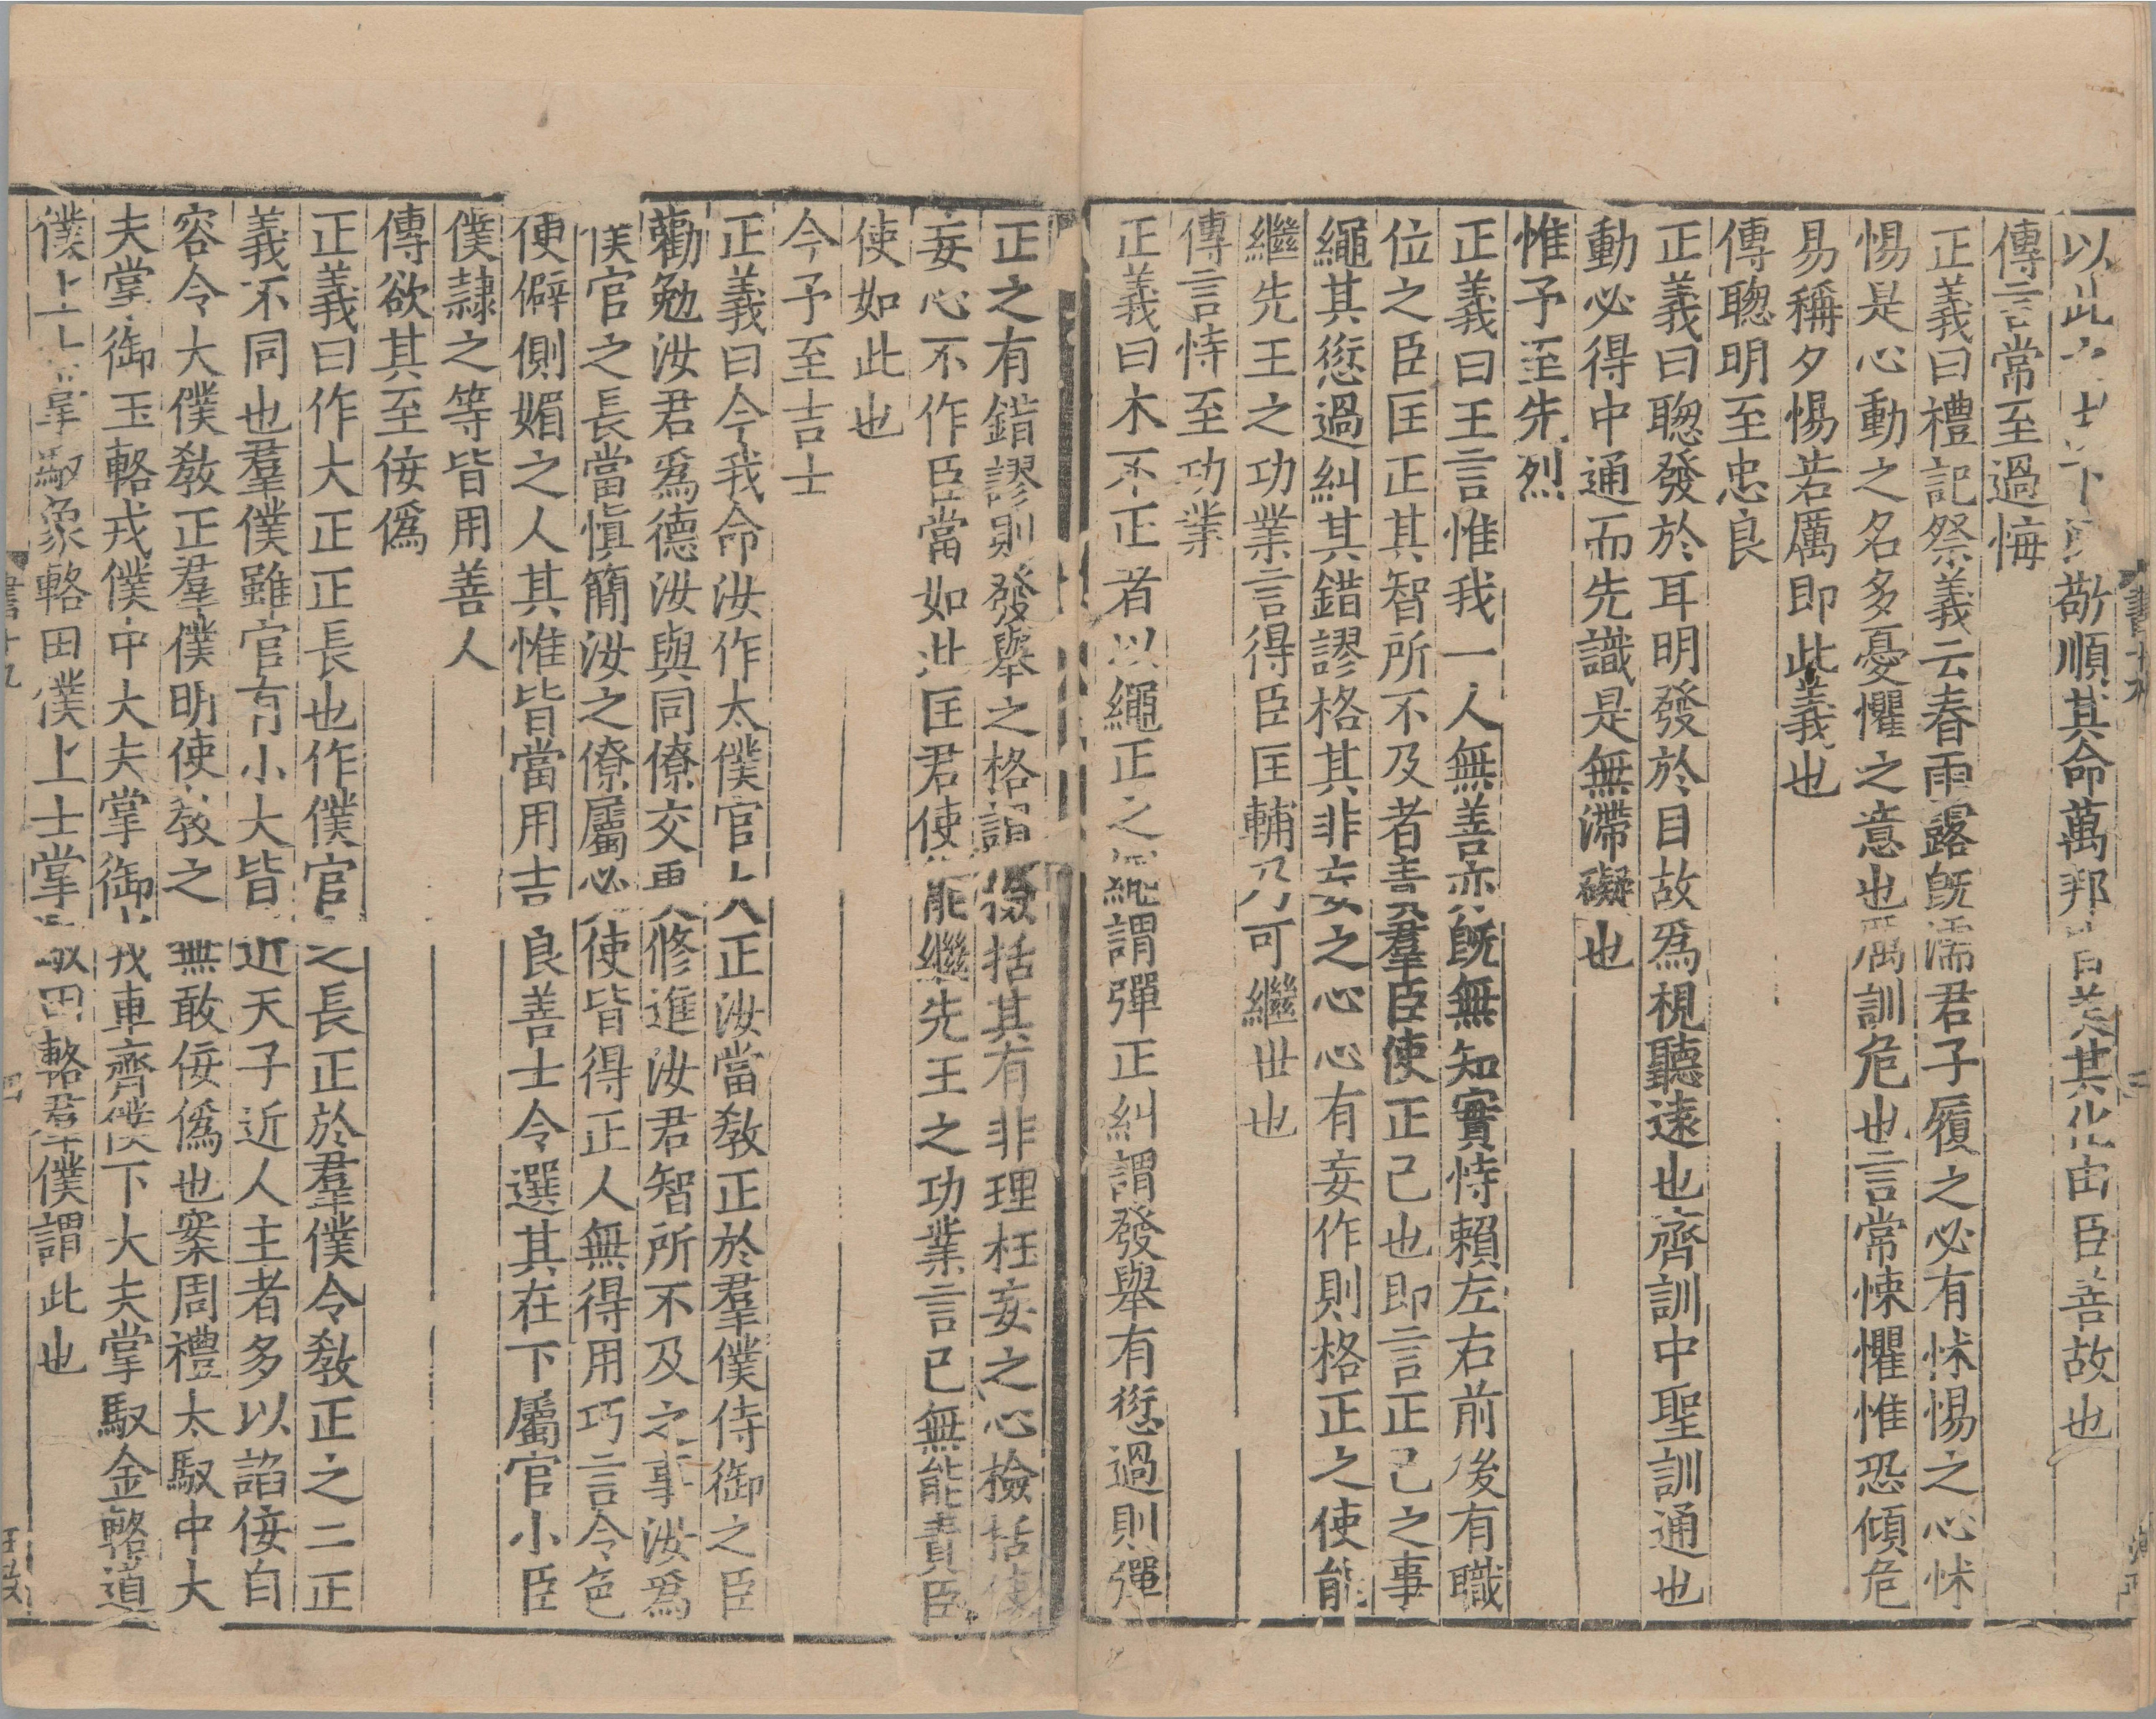 以此之故臣下敬順其命萬邦皆美其化由臣善故也
傳言常至過悔
正義曰禮記祭義云春雨露旣濡君子履之必有怵惕之心怵
惕是心動之名多憂懼之意也厲訓危也言常悚懼惟恐傾危
易稱夕惕若厲即此義也
傳聦明至忠良
正義曰聦發於耳明發於目故爲視聽遠也齊訓中聖訓通也
動必得中通而先識是無滯礙也
惟予至先烈
正義曰王言惟我一人無善亦旣無知實恃賴左右前後有職
位之臣匡正其智所不及者責羣臣使正己也即言正己之事
繩其愆過糾其錯謬格其非妄之心心有妄作則格正之使能
繼先王之功業言得臣匡輔乃可繼世也
傳言恃至功業
正義曰木不正者以繩正之繩謂彈正糾謂發舉有愆過則彈
正之有錯謬則發舉之格謂檢括其有非理枉妄之心檢括使
妄心不作臣當如此匡君使能繼先王之功業言已無能責臣
使如此也
今予至吉士
正義曰今我命汝作太僕官大正汝當敎正於羣僕侍御之臣
勸勉汝君爲德汝與同僚交更修進汝君智所不及之事汝爲
僕官之長當愼簡汝之僚屬必使皆得正人無得用巧言令色
便僻側媚之人其惟皆當用吉良善士令選其在下屬官小臣
僕隷之等皆用善人
傳欲其至侫僞
正義曰作大正正長也作僕官之長正於羣僕令敎正之二正
義不同也羣僕雖官有小大皆近天子近人主者多以諂侫自
容令大僕敎正羣僕明使敎之無敢侫僞也案周禮太馭中大
夫掌御玉輅戎僕中大夫掌御戎車齊僕下大夫掌馭金輅道
僕上士掌馭象輅田僕上士掌馭田輅羣僕謂此也
書十九